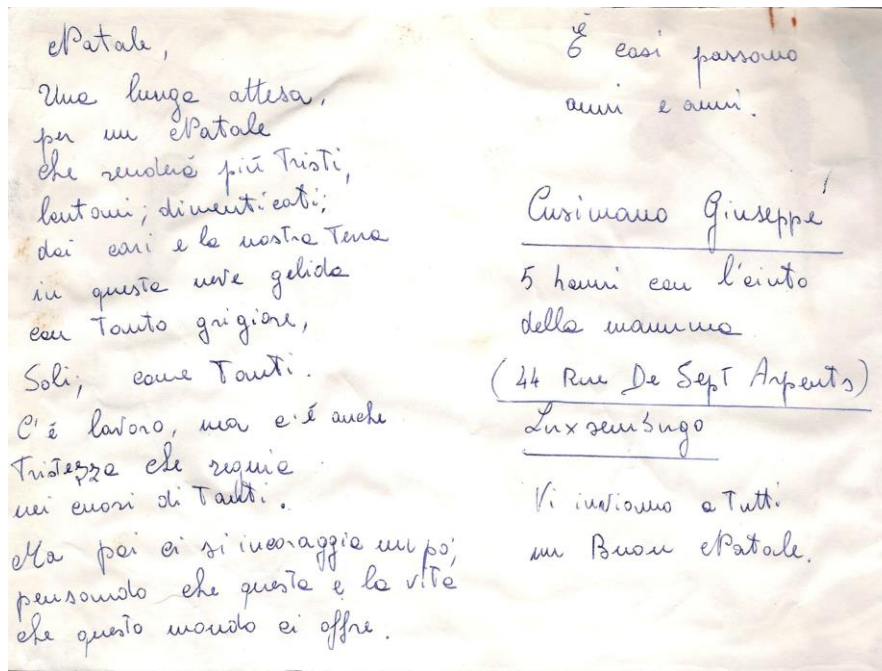 Natale,
Una lunga attesa,
per un Natale
che renderá più Tristi,
lontani, dimenticati;
dai cari e la nostra Terra
in questa neve gelida
con Tanto grigiore,
Soli, come Tanti.
C'é lavoro, ma c'é anche
Tristezza che regnia
nei cuori di Tanti.
Ma poi ci si incoraggia un pó,
pensando che questa e la vita
che questo mondo ci offre.
É cosi passono
anni e anni.
Cusimano Giuseppe
5 hanni con l'aiuto
della mamma
(44 Rue De Sept Arpents)
Luxsemburgo
Vi inviamo a Tutti
un Buon Natale.